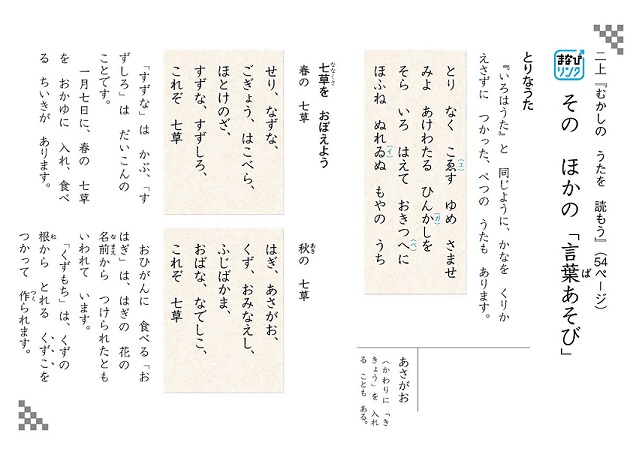 二上『むかしの うたを 読もう』(54ページ)
まなび
リンク
その ほかの 「言葉あそび」
ば
とりなうた
『いろはうた』と 同じように、かなを くりか
えさずに つかった、べつの うたも あります。
とり なく こゑす ゆめ さませ
(エ)
みよ あけわたる ひんかしを
(ガ)
そら いろ はえて おきつへに
(ベ)
ほふね ぬれゐぬ もやの うち
(イ)
七草を おぼえよう
ななくさ
春の 七草
せり、なずな、
ごぎょう、はこべら、
ほとけのざ、
すずな、すずしろ、
これぞ 七草
「すずな」は かぶ、「す
ずしろ」は だいこんの
ことです。
一月七日に、春の 七草
を おかゆに 入れ、食べ
る ちいきが あります。
あさがお
(かわりに 「き
きょう」を 入れ
る ことも ある。
秋の 七草
あき
はぎ、あさがお、
くず、おみなえし、
ふじばかま、
おばな、なでしこ、
これぞ 七草
おひがんに 食べる「お
はぎ」は、はぎの 花の
名前から つけられたとも
なまえ
いわれて います。
「くずもち」は、くずの
根から とれる くずこを
ね
つかって 作られます。
つく